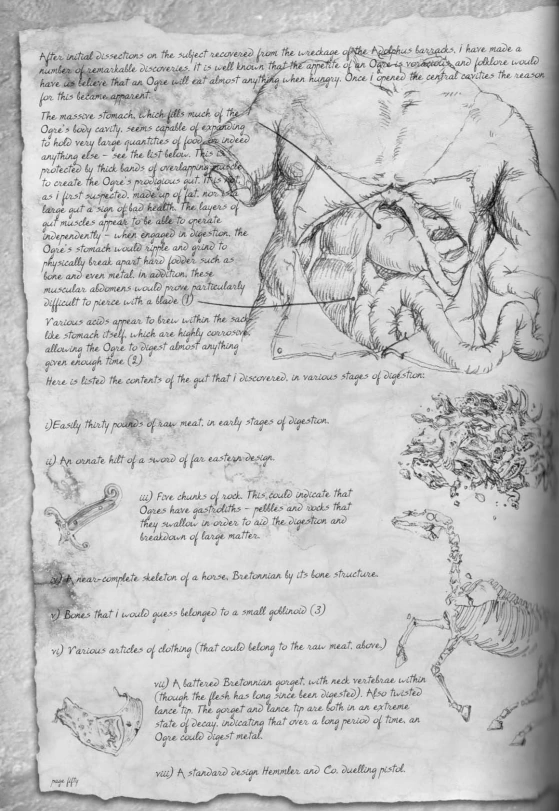 After initial dissections on the subject recovered from the wreckage of the Adolphus barracks, I have made a
number of remarkable discoveries. It is well known that the appetite of an Ogre is voracious, and folklore would
have us believe that an Ogre will eat almost anything when hungry. Once I opened the central cavities the reason
for this became apparent.
The massive stomach, which fills much of the
Ogre's body cavity, seems capable of expanding
to hold very large quantities of food, or indeed
anything else – see the list below. This is
protected by thick bands of overlapping muscle
to create the Ogre's prodigious gut. It is not
as I first suspected, made up of fat, nor is a
large gut a sign of bad health. The layers of
gut muscles appear to be able to operate
independently – when engaged in digestion, the
Ogre's stomach would ripple and grind to
physically break apart hard fodder such as
bone and even metal. In addition, these
muscular abdomens would prove particularly
difficult to pierce with a blade (1)
Various acids appear to brew within the sack
like stomach itself, which are highly corrosive,
allowing the Ogre to digest almost anything
given enough time (2)
Here is listed the contents of the gut that I discovered, in various stages of digestion:
i)Easily thirty pounds of raw meat, in early stages of digestion.
ii) An ornate hilt of a sword of far eastern design.
iii) Five chunks of rock. This could indicate that
Ogres have gastroliths – pebbles and rocks that
they swallow in order to aid the digestion and
breakdown of large matter.
iv) A near-complete skeleton of a horse, Bretonnian by its bone structure.
v) Bones that I would guess belonged to a small goblinoid (3)
vi) Various articles of clothing (that could belong to the raw meat, above.)
vii) A battered Bretonnian gorget, with neck vertebrae within
(though the flesh has long since been digested). Also twisted
lance tip. The gorget and lance tip are both in an extreme
state of decay, indicating that over a long period of time, an
Ogre could digest metal.
viii) A standard design Hemmler and Co. duelling pistol.
page fifty